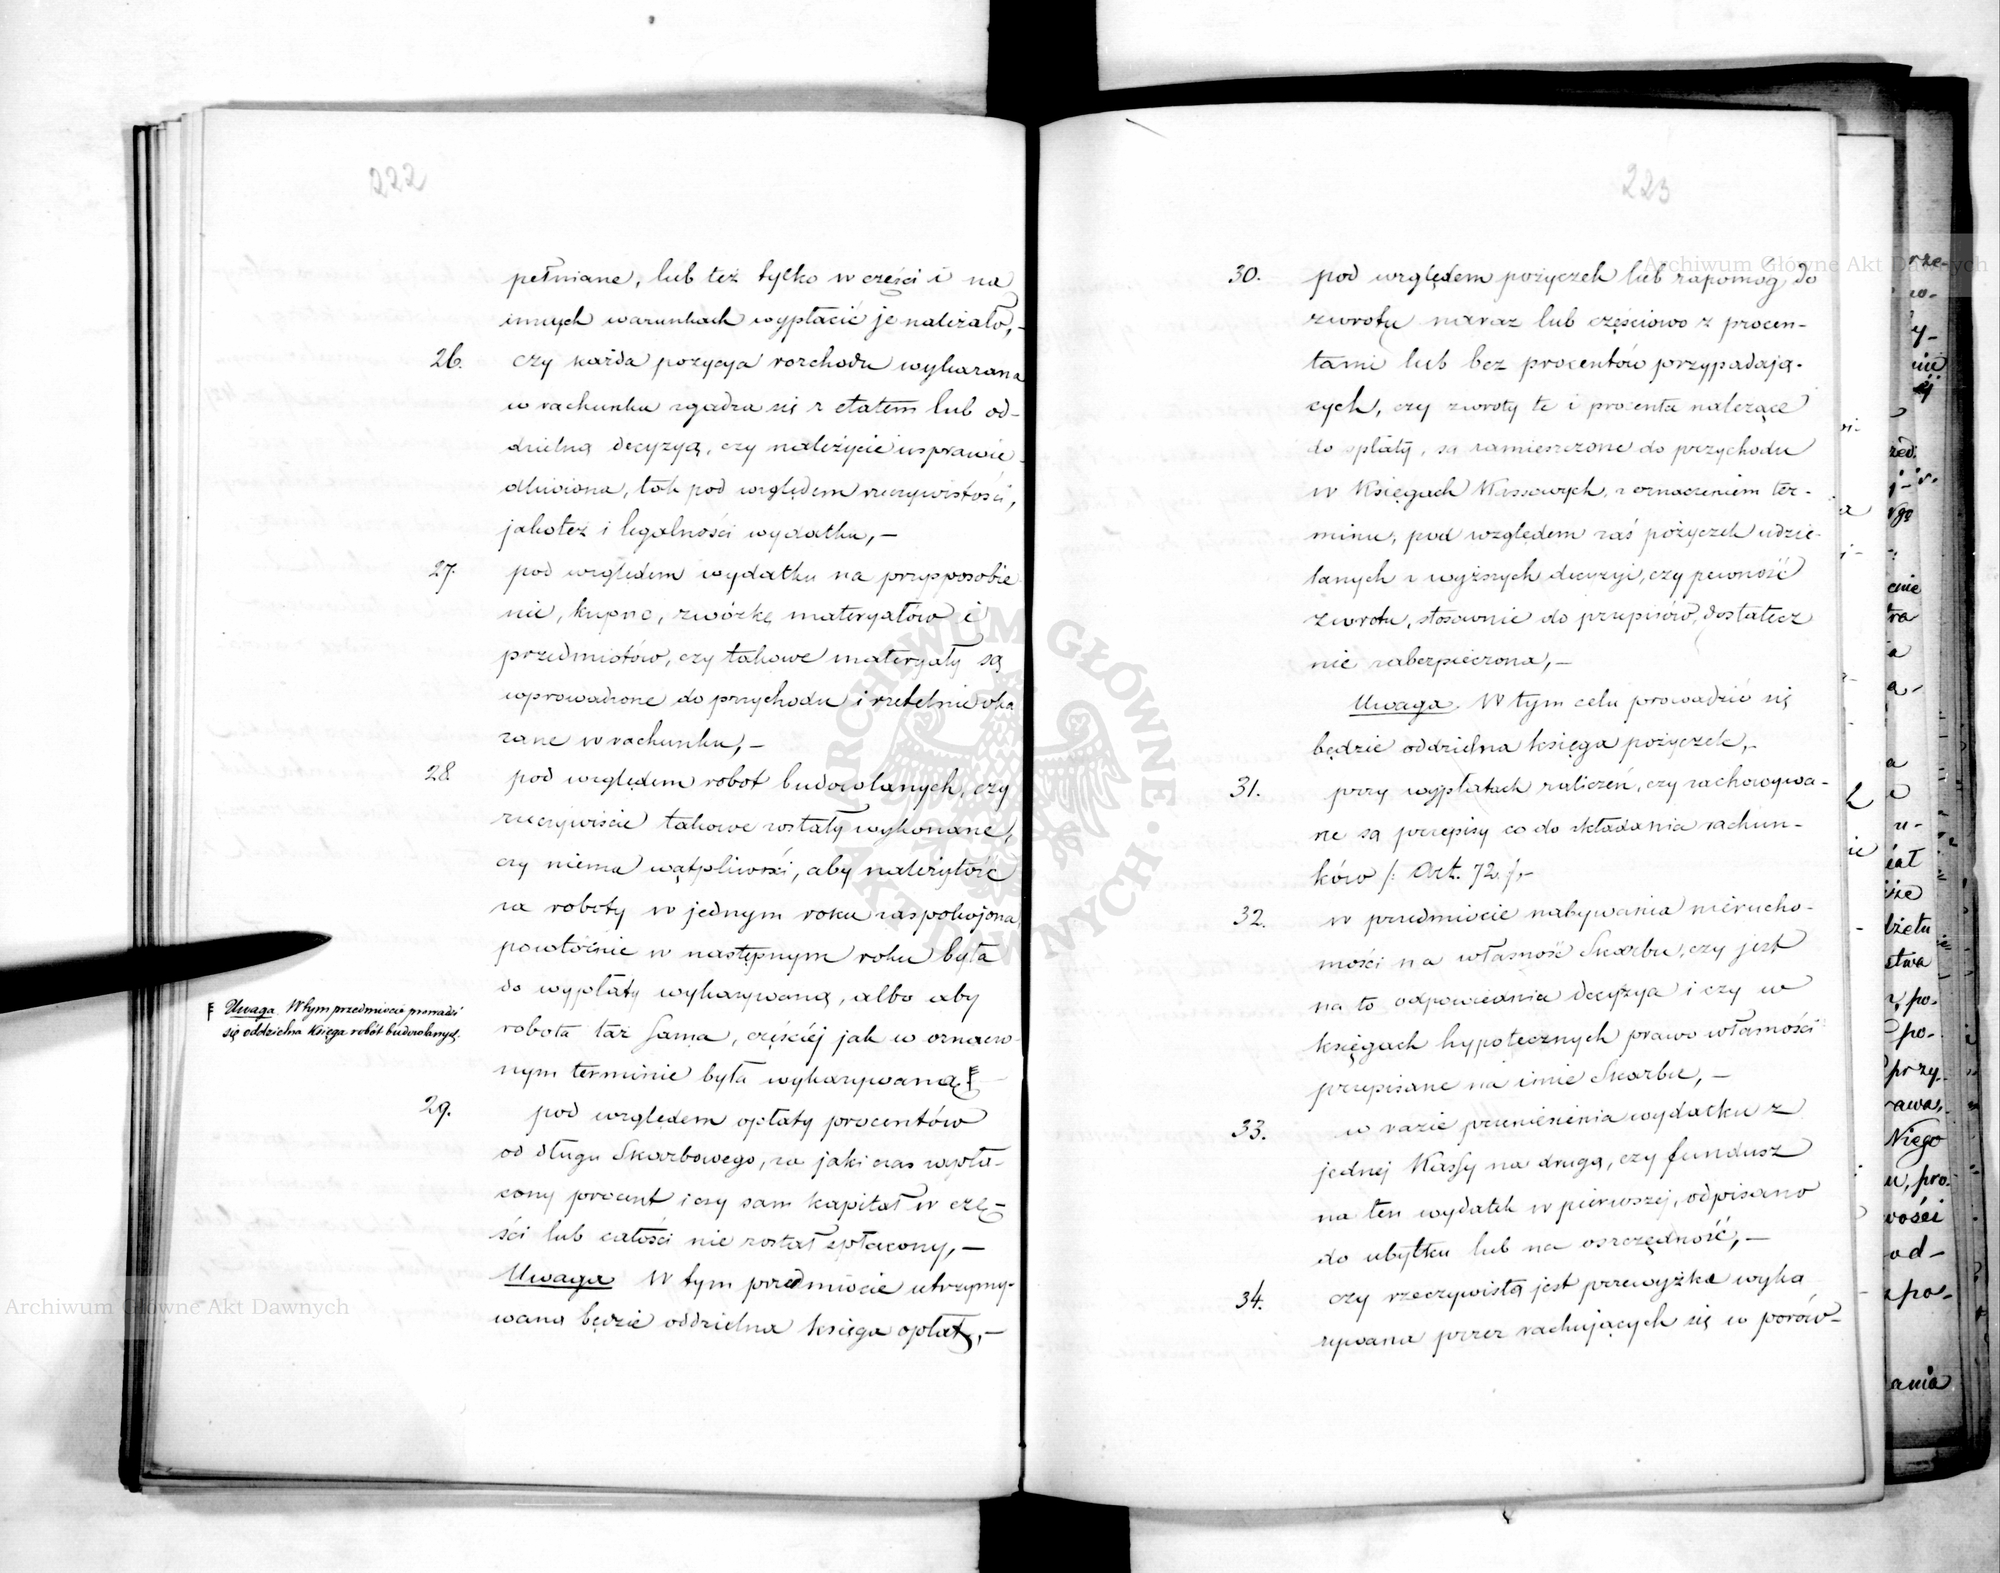 222
pełniane, lub też tylko w części i na
innych warunkach wypłacić je należało,—
26. czy każda pozycya rozchodu wykazana
w rachunku zgadza się z etatem lub od-
dzielną decyzyą, czy należycie usprawie-
dliwiona, tak pod względem rzeczywistości,
jakoteż i legalności wydatku,—
27. pod względem wydatku na przysposobie
nie, kupno, zwózkę materyałów i
przedmiotów, czy takowe materyały są
wprowadzone do przychodu i rzetelnie oka
zane w rachunku,—
28 pod względem robot budowlanych, czy
rzeczywiście takowe zostały wykonane,
czy niema wątpliwości, aby należytość
za roboty w jednym roku zaspokojona,
powtórnie w następnym roku była
do wypłaty wykazywaną, albo aby
robota taż sama, częściéj jak w oznaczo-
nym terminie była wykazywaną F
F Uwaga. W tym przedmiocie prowadzi
się oddzielna Księga robót budowlanych.
29. pod względem opłaty procentów
od długu Skarbowego, za jaki czas wypła-
cony procent i czy sam kapitał w czę-
ści lub całości nie został spłacony,—
Uwaga W tym przedmiocie utrzymy-
waną będzie oddzielna księga opłaty,—
223
30. pod względem pożyczek lub zapomóg do
zwrotu naraz lub częściowo z procen-
tami lub bez procentów przypadają-
cych, czy zwroty te i procenta należące
do opłaty, są zamieszczone do przychodu
w Księgach Kassowych, z oznaczeniem ter-
minu, pod względem zaś pożyczek udzie-
lanych z wyższych decyzyi, czy pewność
zwrotu, stosownie do przepisów, dostatecz
nie zabezpieczona,—
Uwaga. W tym celu prowadzić się
będzie oddzielna księga pożyczek,—
31. przy wypłatach zaliczeń, czy zachowywa-
ne są przepisy co do składania rachun-
ków /: Art. 72. /,—
32. w przedmiocie nabywania nierucho-
mości na własność Skarbu, czy jest
na to odpowiednia decyzya i czy w
księgach hypotecznych prawo własności
przepisane na imie Skarbu,—
33. w razie przeniesienia wydatku z
jednej Kassy na drugą, czy fundusz
na ten wydatek w pierwszej, odpisano
do ubytku lub na oszczędność,—
34. czy rzeczywistą jest przewyżka wyka
zywana przez rachujących się w porów-
Archiwum Główne Akt Dawnych
Archiwum Główne Akt Dawnych
ARCHIWUM GŁÓWNE · AKT DAWNYCH ·